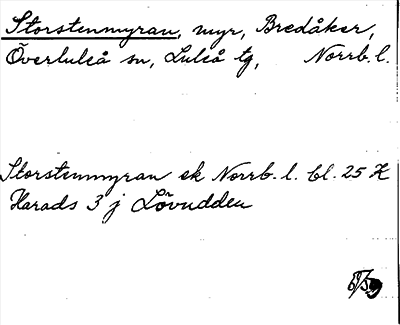 Storstenmyran, myr, Bredåker,
Överluleå sn, Luleå tg, Norrb. l.
Storstenmyran ek Norrb. l. bl. 25 K
Harads 3 j Lövudden